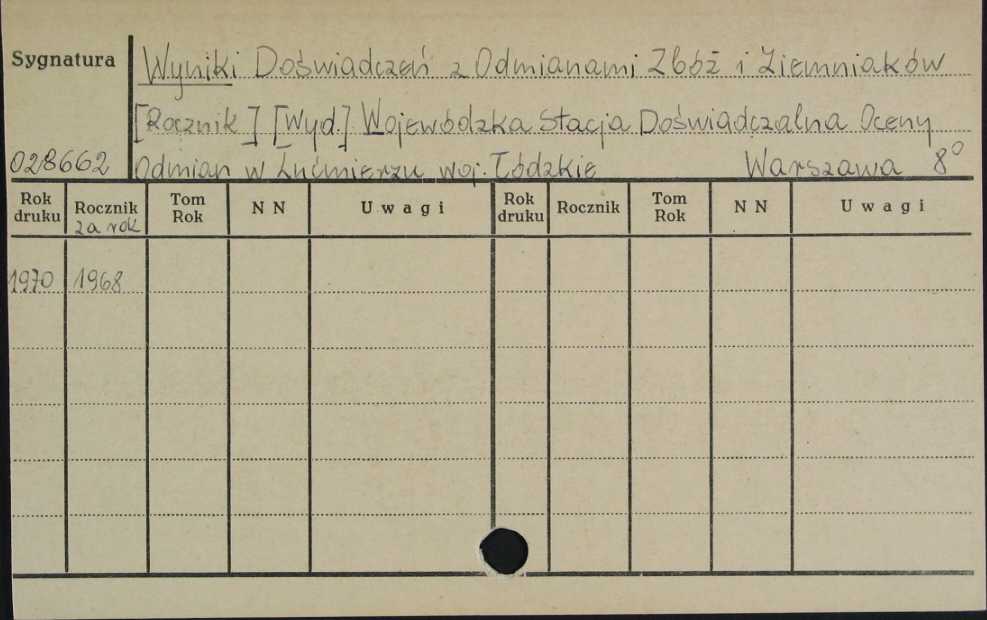 Sygnatura
Wyniki Doświadczeń z Odmianami Zbóż i Ziemniaków
[Rocznik] [Wyd.] Wojewódzka Stacja Doświadczalna Oceny
028662 Odmian w Lućmierzu woj. Łódzkie Warszawa 8°
Rok druku Rocznik za rok Tom Rok N N Uwagi Rok druku Rocznik Tom Rok N N Uwagi
1970 1968